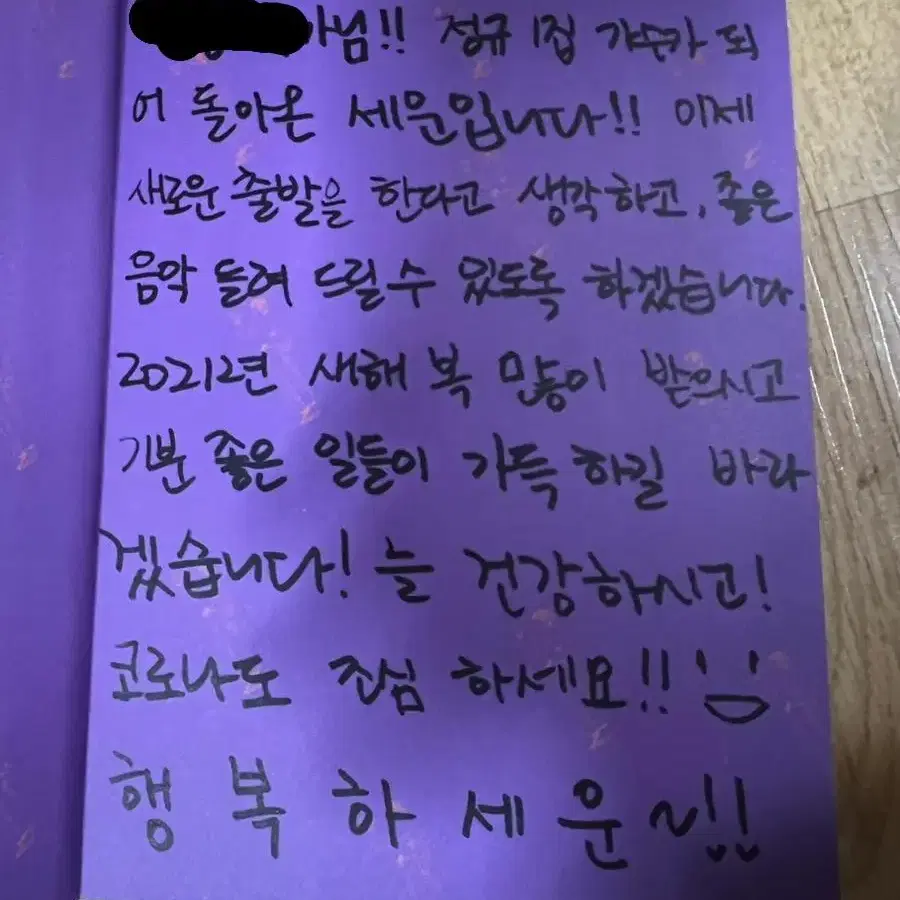 님!! 정규 1집 가수가 되
어 돌아온 세운입니다!! 이제
새로운 출발을 한다고 생각하고, 좋은
음악 들려 드릴 수 있도록 하겠습니다.
2021년 새해 복 많이 받으시고
기분 좋은 일들이 가득하길 바라
겠습니다! 늘 건강하시고!
코로나도 조심 하세요!!
행 복 하 세 운~!!